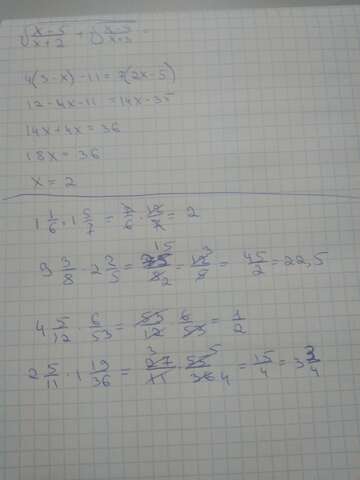 √x-5/x+2 + √x-5/x+3 =
4(3-x)-11=7(2x-5)
12-4x-11=14x-35
14x+4x=36
18x=36
x=2
1 1/6 · 1 5/7 = 7/6 · 12/7 = 2
9 3/8 · 2 2/5 = 75/8 · 12/5 = 45/2 = 22,5
4 5/12 · 6/53 = 53/12 · 6/53 = 1/2
2 5/11 · 1 19/36 = 27/11 · 55/36 = 15/4 = 3 3/4